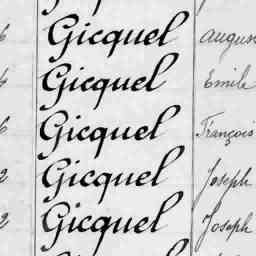 6 Gicquel August
4 Gicquel Emile
6 Gicquel François
2 Gicquel Joseph
2 Gicquel Joseph